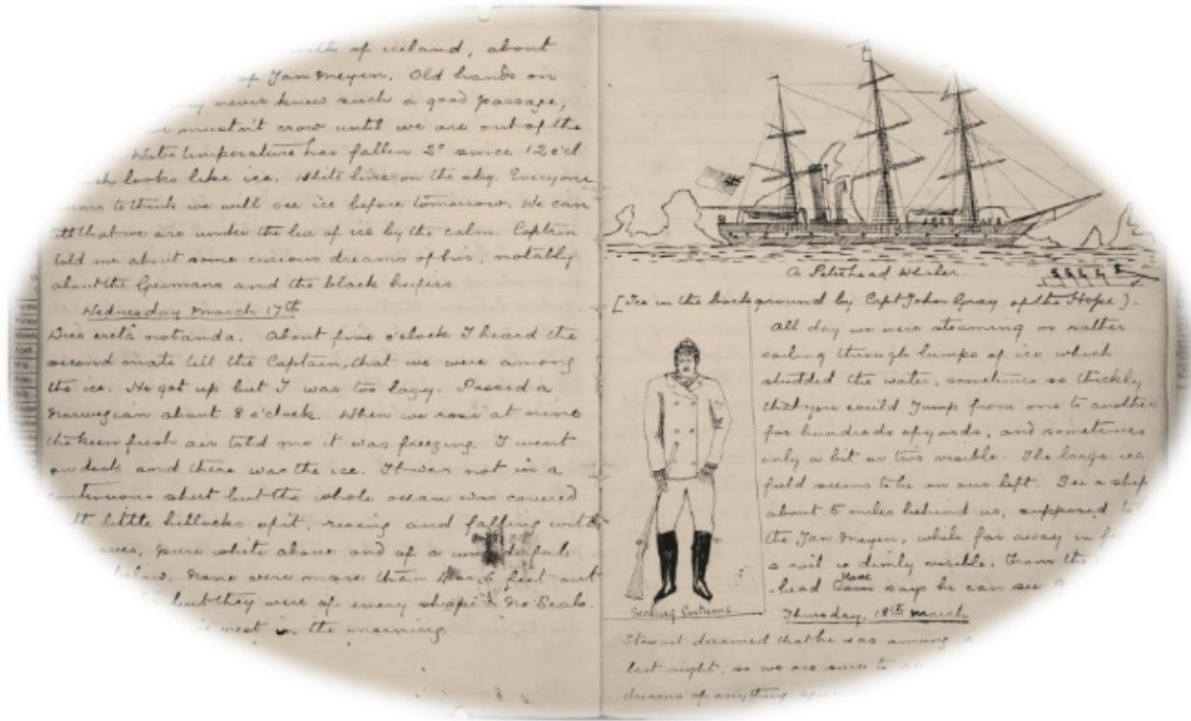 of iceland, about
of Jan Meyen. Old hands on
never knew such a good passage,
mustn't crow until we are out of the
Water temperature has fallen 2° since 12 o'cl
looks like ice. White line on the sky. Everyone
to think we will see ice before tomorrow. We can
that we are under the lea of ice by the calm. Captain
told me about some curious dreams of his, notably
about the Germans and the black heifers.
Wednesday March 17th
Dies creta notanda. About five o'clock I heard the
second mate tell the Captain, that we were among
the ice. He got up but I was too lazy. Passed a
Norwegian about 8 o'clock. When we rose at nine
the keen fresh air told me it was freezing. I went
on deck and there was the ice. It was not in a
continuous sheet but the whole ocean was covered
little hillocks of it, rising and falling with
pure white above and of a wonderful
below. None were more than feet out
but they were of every shape. No Seals.
in the morning.
A Peterhead Whaler.
[Ice in the background by Capt John Gray of the Hope].
All day we were steaming or rather
sailing through lumps of ice which
studded the water, sometimes so thickly
that you could jump from one to another
for hundreds of yards, and sometimes
only a bit or two visible. The large ice
field seems to be on our left. See a ship
about 5 miles behind us, supposed to
the Jan Meyen, while far away in
a sail is dimly visible. From the
head says he can see
Sealing Costume
Thursday, 18th March
Stewart dreamed that he was among
last night, so we are sure to
dreams of anything